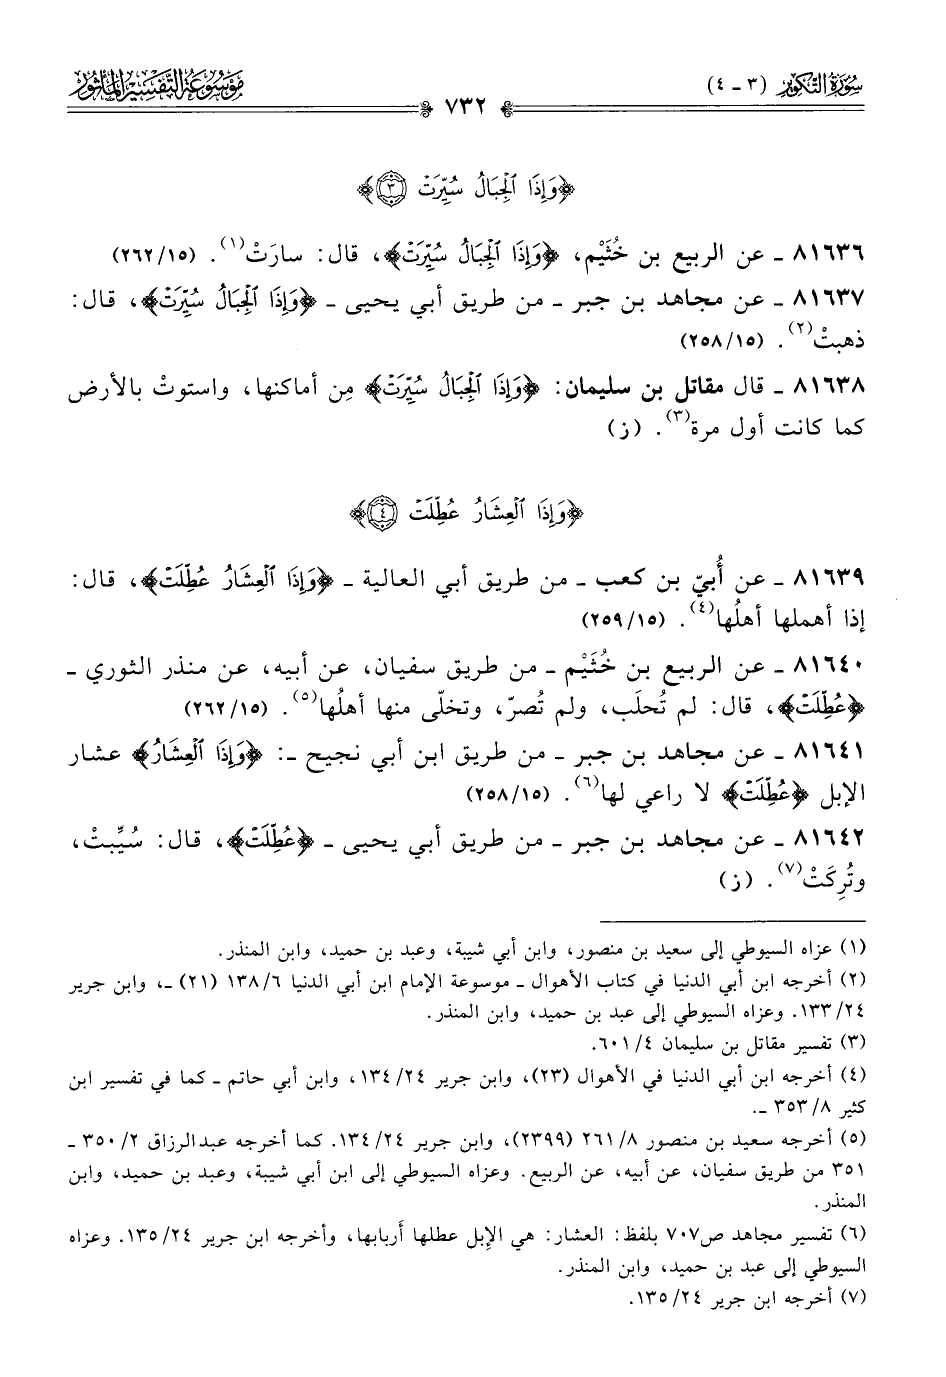 سُورَةُ التَّكْوِير (٣ - ٤)
مَوْسُوعَةُ التَّفْسِيرِ المَأْثُور
٧٣٢
﴿وَإِذَا ٱلْجِبَالُ سُيِّرَتْ ٣﴾
٨١٦٣٦ ـ عن الربيع بن خُثَيْم، ﴿وَإِذَا ٱلْجِبَالُ سُيِّرَتْ﴾، قال: سارَتْ(١). (١٥/٢٦٢)
٨١٦٣٧ ـ عن مجاهد بن جبر ـ من طريق أبي يحيى ـ ﴿وَإِذَا ٱلْجِبَالُ سُيِّرَتْ﴾، قال:
ذهبتْ(٢). (١٥/٢٥٨)
٨١٦٣٨ ـ قال مقاتل بن سليمان: ﴿وَإِذَا ٱلْجِبَالُ سُيِّرَتْ﴾ مِن أماكنها، واستوتْ بالأرض
كما كانت أول مرة(٣). (ز)
﴿وَإِذَا ٱلْعِشَارُ عُطِّلَتْ ٤﴾
٨١٦٣٩ ـ عن أُبيّ بن كعب ـ من طريق أبي العالية ـ ﴿وَإِذَا ٱلْعِشَارُ عُطِّلَتْ﴾، قال:
إذا أهملها أهلُها(٤). (١٥/٢٥٩)
٨١٦٤٠ ـ عن الربيع بن خُثَيْم ـ من طريق سفيان، عن أبيه، عن منذر الثوري ـ
﴿عُطِّلَتْ﴾، قال: لم تُحلَب، ولم تُصرّ، وتخلّى منها أهلُها(٥). (١٥/٢٦٢)
٨١٦٤١ ـ عن مجاهد بن جبر ـ من طريق ابن أبي نجيح ـ: ﴿وَإِذَا ٱلْعِشَارُ﴾ عشار
الإبل ﴿عُطِّلَتْ﴾ لا راعي لها(٦). (١٥/٢٥٨)
٨١٦٤٢ ـ عن مجاهد بن جبر ـ من طريق أبي يحيى ـ ﴿عُطِّلَتْ﴾، قال: سُيِّبتْ،
وتُرِكَتْ(٧). (ز)
(١) عزاه السيوطي إلى سعيد بن منصور، وابن أبي شيبة، وعبد بن حميد، وابن المنذر.
(٢) أخرجه ابن أبي الدنيا في كتاب الأهوال ـ موسوعة الإمام ابن أبي الدنيا ٦/١٣٨ (٢١) ـ، وابن جرير
٢٤/١٣٣. وعزاه السيوطي إلى عبد بن حميد، وابن المنذر.
(٣) تفسير مقاتل بن سليمان ٤/٦٠١.
(٤) أخرجه ابن أبي الدنيا في الأهوال (٢٣)، وابن جرير ٢٤/١٣٤، وابن أبي حاتم ـ كما في تفسير ابن
كثير ٨/٣٥٣ ـ.
(٥) أخرجه سعيد بن منصور ٨/٢٦١ (٢٣٩٩)، وابن جرير ٢٤/١٣٤. كما أخرجه عبدالرزاق ٢/٣٥٠ ـ
٣٥١ من طريق سفيان، عن أبيه، عن الربيع. وعزاه السيوطي إلى ابن أبي شيبة، وعبد بن حميد، وابن
المنذر.
(٦) تفسير مجاهد ص٧٠٧ بلفظ: العشار: هي الإبل عطلها أربابها، وأخرجه ابن جرير ٢٤/١٣٥. وعزاه
السيوطي إلى عبد بن حميد، وابن المنذر.
(٧) أخرجه ابن جرير ٢٤/١٣٥.